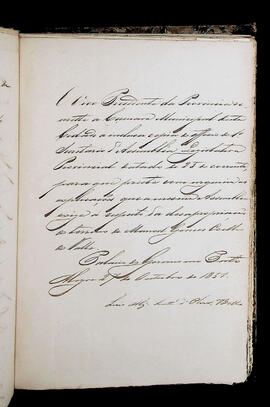 O Vice Presidente da Provincia re-
mette a Camara Municipal desta
Cidade a inclusa copia do officio do 1º
Secretario d'Assemblea Legislativa
Provincial datado de 25 do corrente,
para que preste com urgencia as
explicações que a mesma Assemblea
exige a respeito da desapropriação
do terreno de Manoel Gomes Coelho
do Valle.
Palacio do Governo em Porto
Alegre 27 de Outubro de 1851.
Luis Alz. d'Oliv. Bello